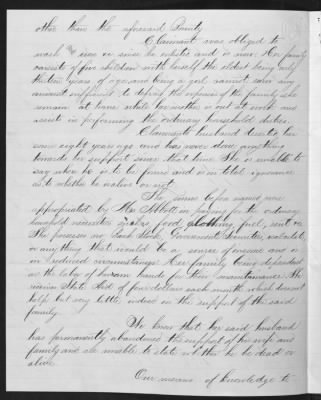 other than the aforesaid Bounty
Claimant was obliged to
work since he enlisted and is now. Her family
consists of five children with herself the eldest being only
thirteen years of age, and being a girl cannot earn any
amount sufficient to defray the expenses of the family, she
remains at home while her mother is out at work and
assists in performing the ordinary household duties.
Claimant's husband deserted her
some eight years ago and has never done anything
towards her support since that time. She is unable to
say where he is to be found and is in total ignorance
as to whether he is alive or not.
The sums before named were
appropriated by Mrs Abbott in paying for the ordinary
household necessities food clothing fuel, rent &c
She possesses no Bank Stock, Government Securities, valuables,
or anything that would be a source of revenue and is
in reduced circumstances. Her family being dependent
on the labor of human hands for their maintenance. She
receives State Aid of four dollars each month which does not
help but very little, indeed in the support of the said
family.
We know that her said husband
has permanently abandoned the support of his wife and
family and are unable to state whether he be dead or
alive.
Our means of knowledge to